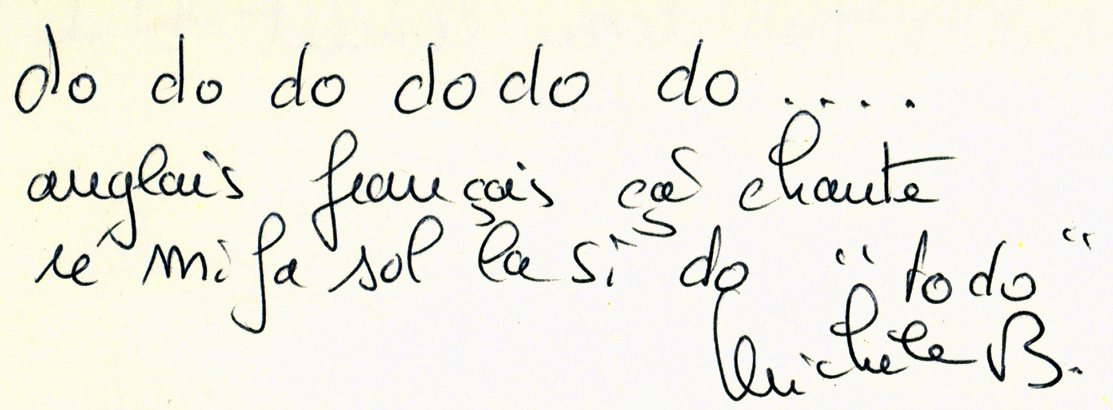 do do do do do do ....
anglais français ça chante
ré mi fa sol la si do "to do"
Michèle B.